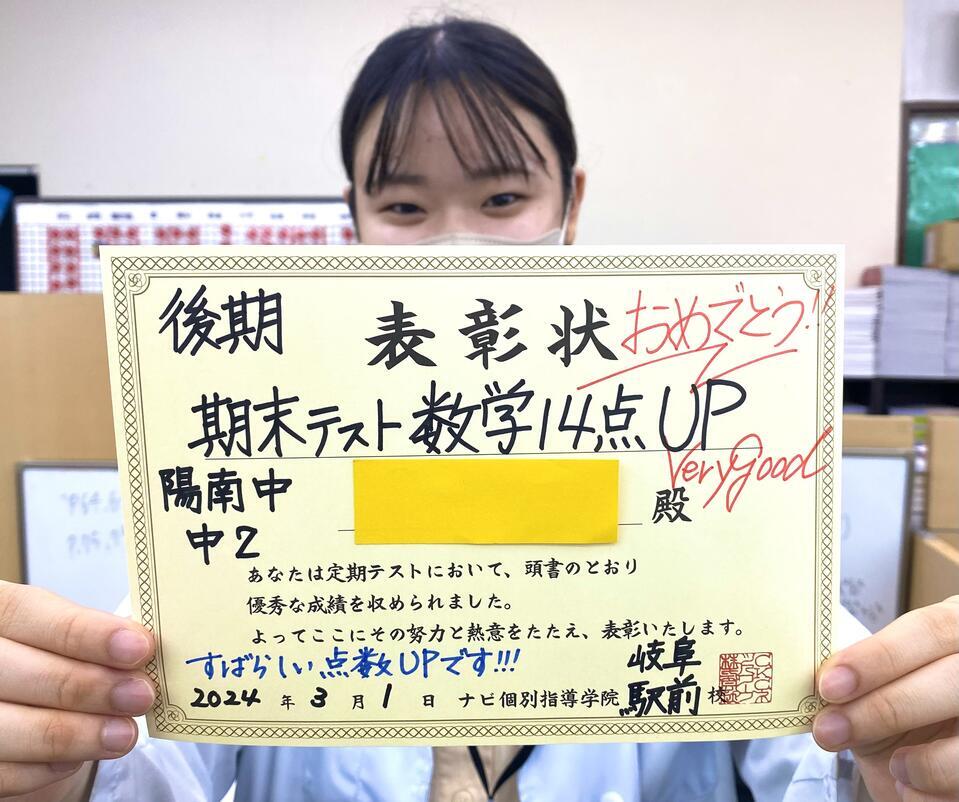 後期
表彰状
おめでとう!!
期末テスト数学14点UP
Very good
陽南中
中2
殿
あなたは定期テストにおいて、頭書のとおり
優秀な成績を収められました。
よってここにその努力と熱意をたたえ、表彰いたします。
すばらしい点数UPです!!!
岐阜
2024年3月1日 ナビ個別指導学院 駅前校